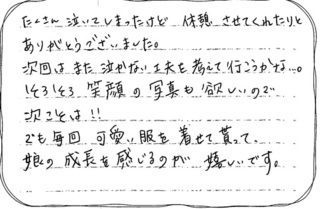 たくさん泣いてしまったけど 休憩 させてくれたりと
ありがとうございました。
次回は また 泣かない 工夫を考えて行こうかな…。
!そろ!そろ 笑顔の写真も欲しいので
次こそは!!
でも毎回 可愛い服を着せて貰って、
娘の成長を感じるのが 嬉しいです。